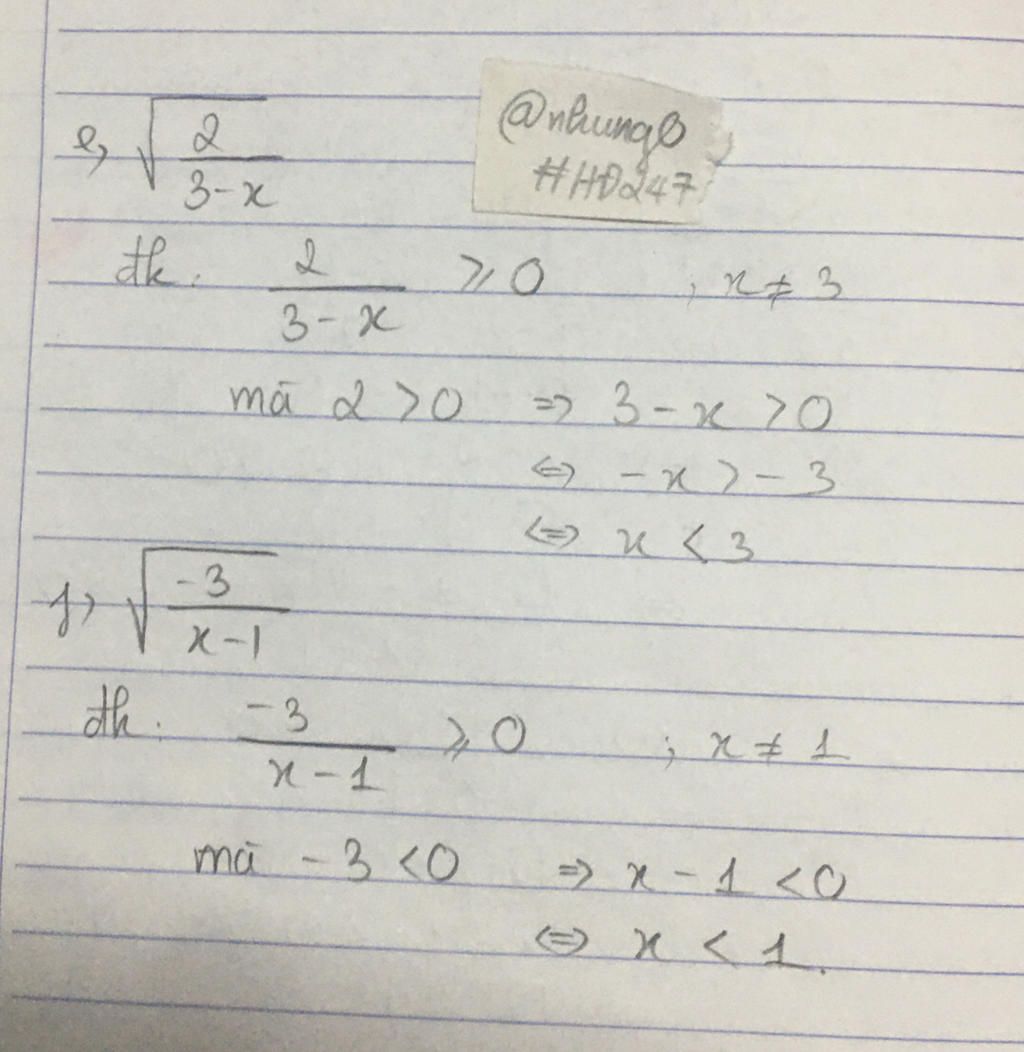 e, √(2/(3-x))
@nhung8
#HĐ247
đk: 2/(3-x) ⩾ 0 ; x ≠ 3
mà 2 > 0 => 3 - x > 0
<=> -x > -3
<=> x < 3
f, √(-3/(x-1))
đk: -3/(x-1) ⩾ 0 ; x ≠ 1
mà -3 < 0 => x - 1 < 0
<=> x < 1.